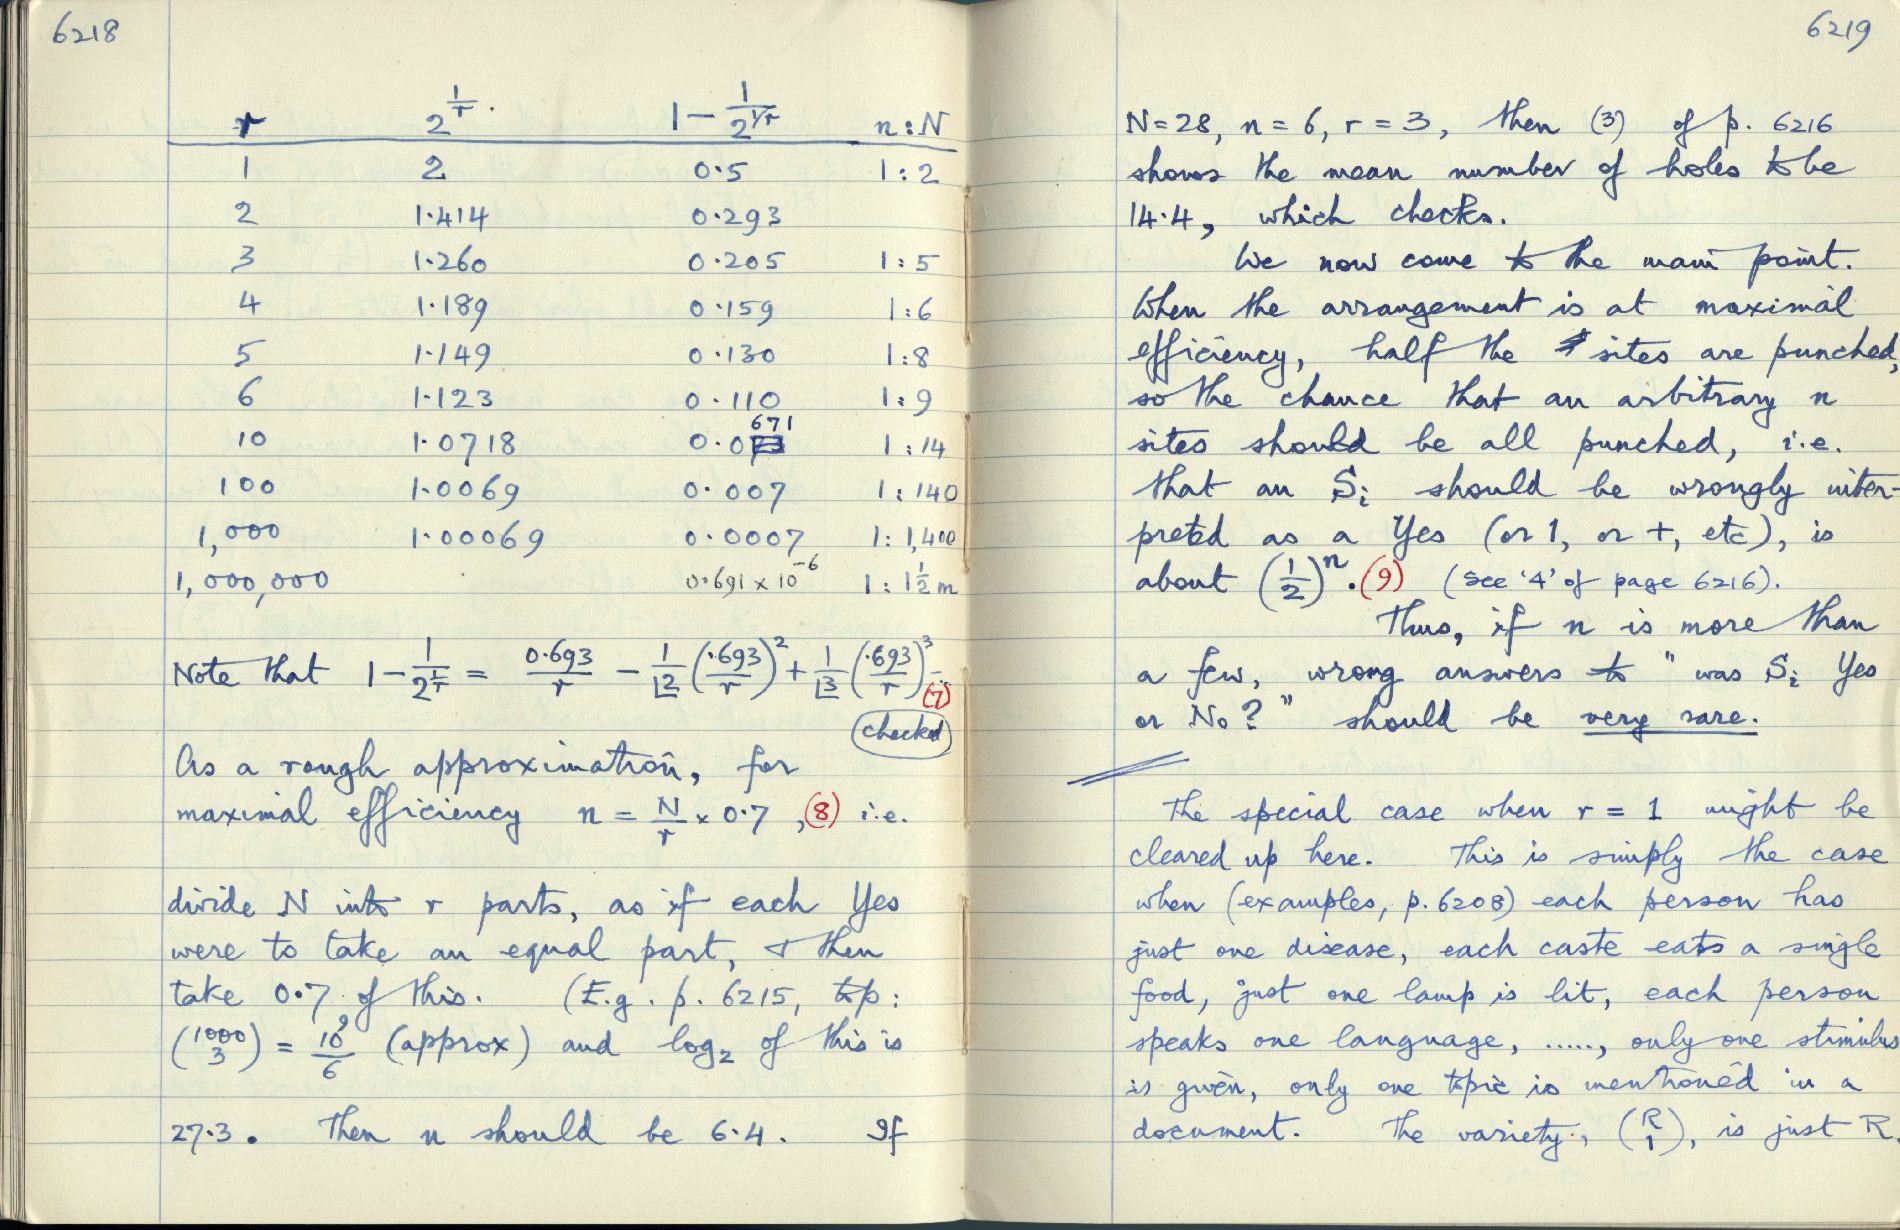 6218
r 2^(1/r) 1 − 1/2^(1/r) n:N
1 2 0·5 1:2
2 1·414 0·293
3 1·260 0·205 1:5
4 1·189 0·159 1:6
5 1·149 0·130 1:8
6 1·123 0·110 1:9
10 1·0718 0·0671 1:14
100 1·0069 0·007 1:140
1,000 1·00069 0·0007 1:1,400
1,000,000 0·691 × 10^−6 1:1½m
Note that 1 − 1/2^(1/r) = 0·693/r − 1/⌊2 (·693/r)² + 1/⌊3 (·693/r)³ − (7)
checked
As a rough approximation, for
maximal efficiency n = N/r × 0·7, (8) i.e.
divide N into r parts, as if each Yes
were to take an equal part, & then
take 0·7 of this. (E.g. p. 6215, top:
(1000 3) = 10⁹/6 (approx) and log₂ of this is
27·3. Then n should be 6·4. If
6219
N=28, n=6, r=3, then (3) of p. 6216
shows the mean number of holes to be
14·4, which checks.
We now come to the main point.
When the arrangement is at maximal
efficiency, half the sites are punched,
so the chance that an arbitrary n
sites should be all punched, i.e.
that an Sᵢ should be wrongly inter-
preted as a Yes (or 1, or +, etc), is
about (1/2)ⁿ. (9) (see '4' of page 6216).
Thus, if n is more than
a few, wrong answers to "was Sᵢ Yes
or No?" should be very rare.
The special case when r = 1 might be
cleared up here. This is simply the case
when (examples, p. 6208) each person has
just one disease, each caste eats a single
food, just one lamp is lit, each person
speaks one language, ....., only one stimulus
is given, only one topic is mentioned in a
document. The variety, (R 1), is just R.